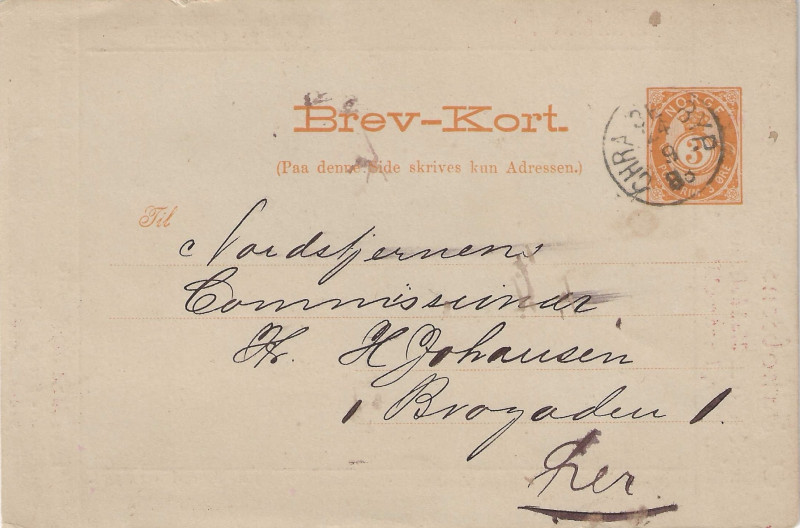 Brev-Kort.
(Paa denne Side skrives kun Adressen.)
NORGE
3
Til
Nordstjernens
Commissionær
Hr. H Johansen
1 Brogaden 1.
her.